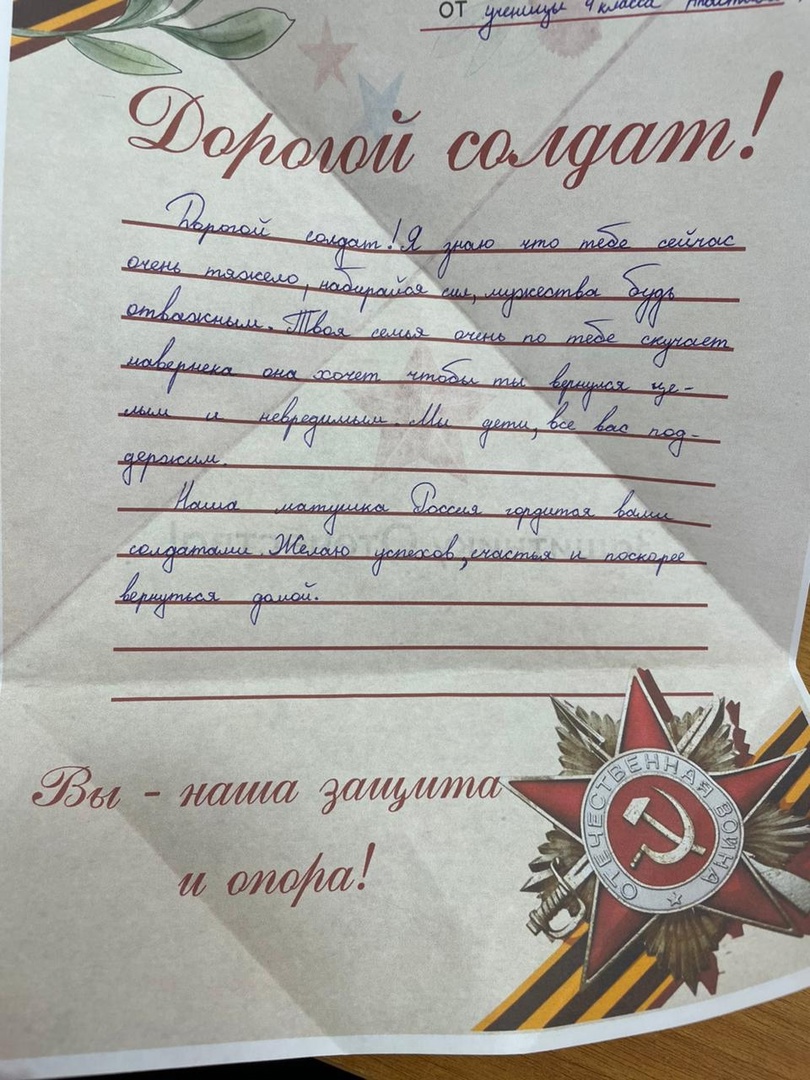 от ученицы 4 класса
Дорогой солдат!
Дорогой солдат! Я знаю что тебе сейчас
очень тяжело, набирайся сил, мужества будь
отважным. Твоя семья очень по тебе скучает
навернека она хочет чтобы ты вернулся це-
лым и невредимым. Мы дети, все вас под-
держим.
Наша матушка Россия гордится вами
солдатами Желаю успехов, счастья и поскорее
вернуться домой.
Вы - наша защита
и опора!
ОТЕЧЕСТВЕННАЯ ВОЙНА